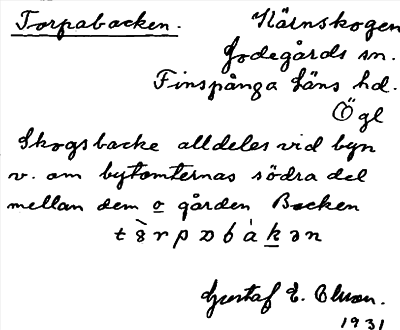 Torpabacken. Kärnskogen
Godegårds sn.
Finspånga Läns hd.
Ögl
Skogsbacke alldeles vid byn
v. om bytomternas södra del
mellan dem o gården Backen
Gustaf E. Olsson.
1931